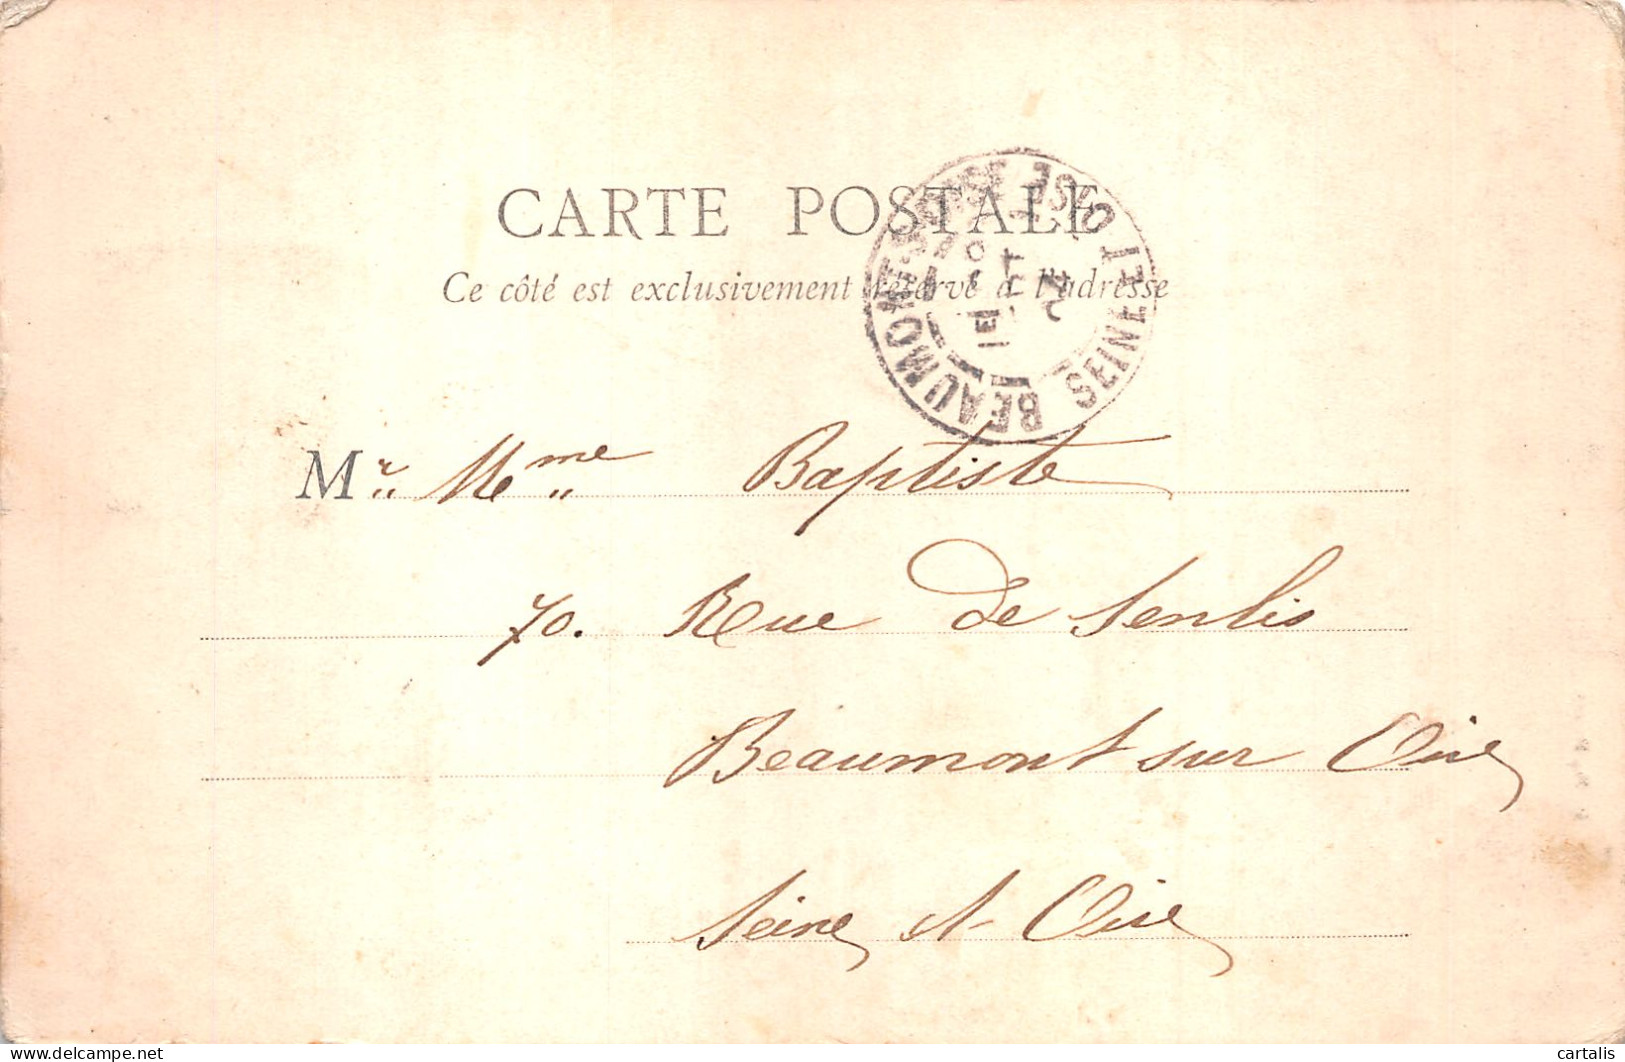 CARTE POSTALE
Ce côté est exclusivement réservé à l'adresse
BEAUMONT-S-OISE SEINE ET OISE
Mr. Mme Baptiste
70. Rue de Senlis
Beaumont sur Oise
Seine et Oise
delcampe.net
cartalis